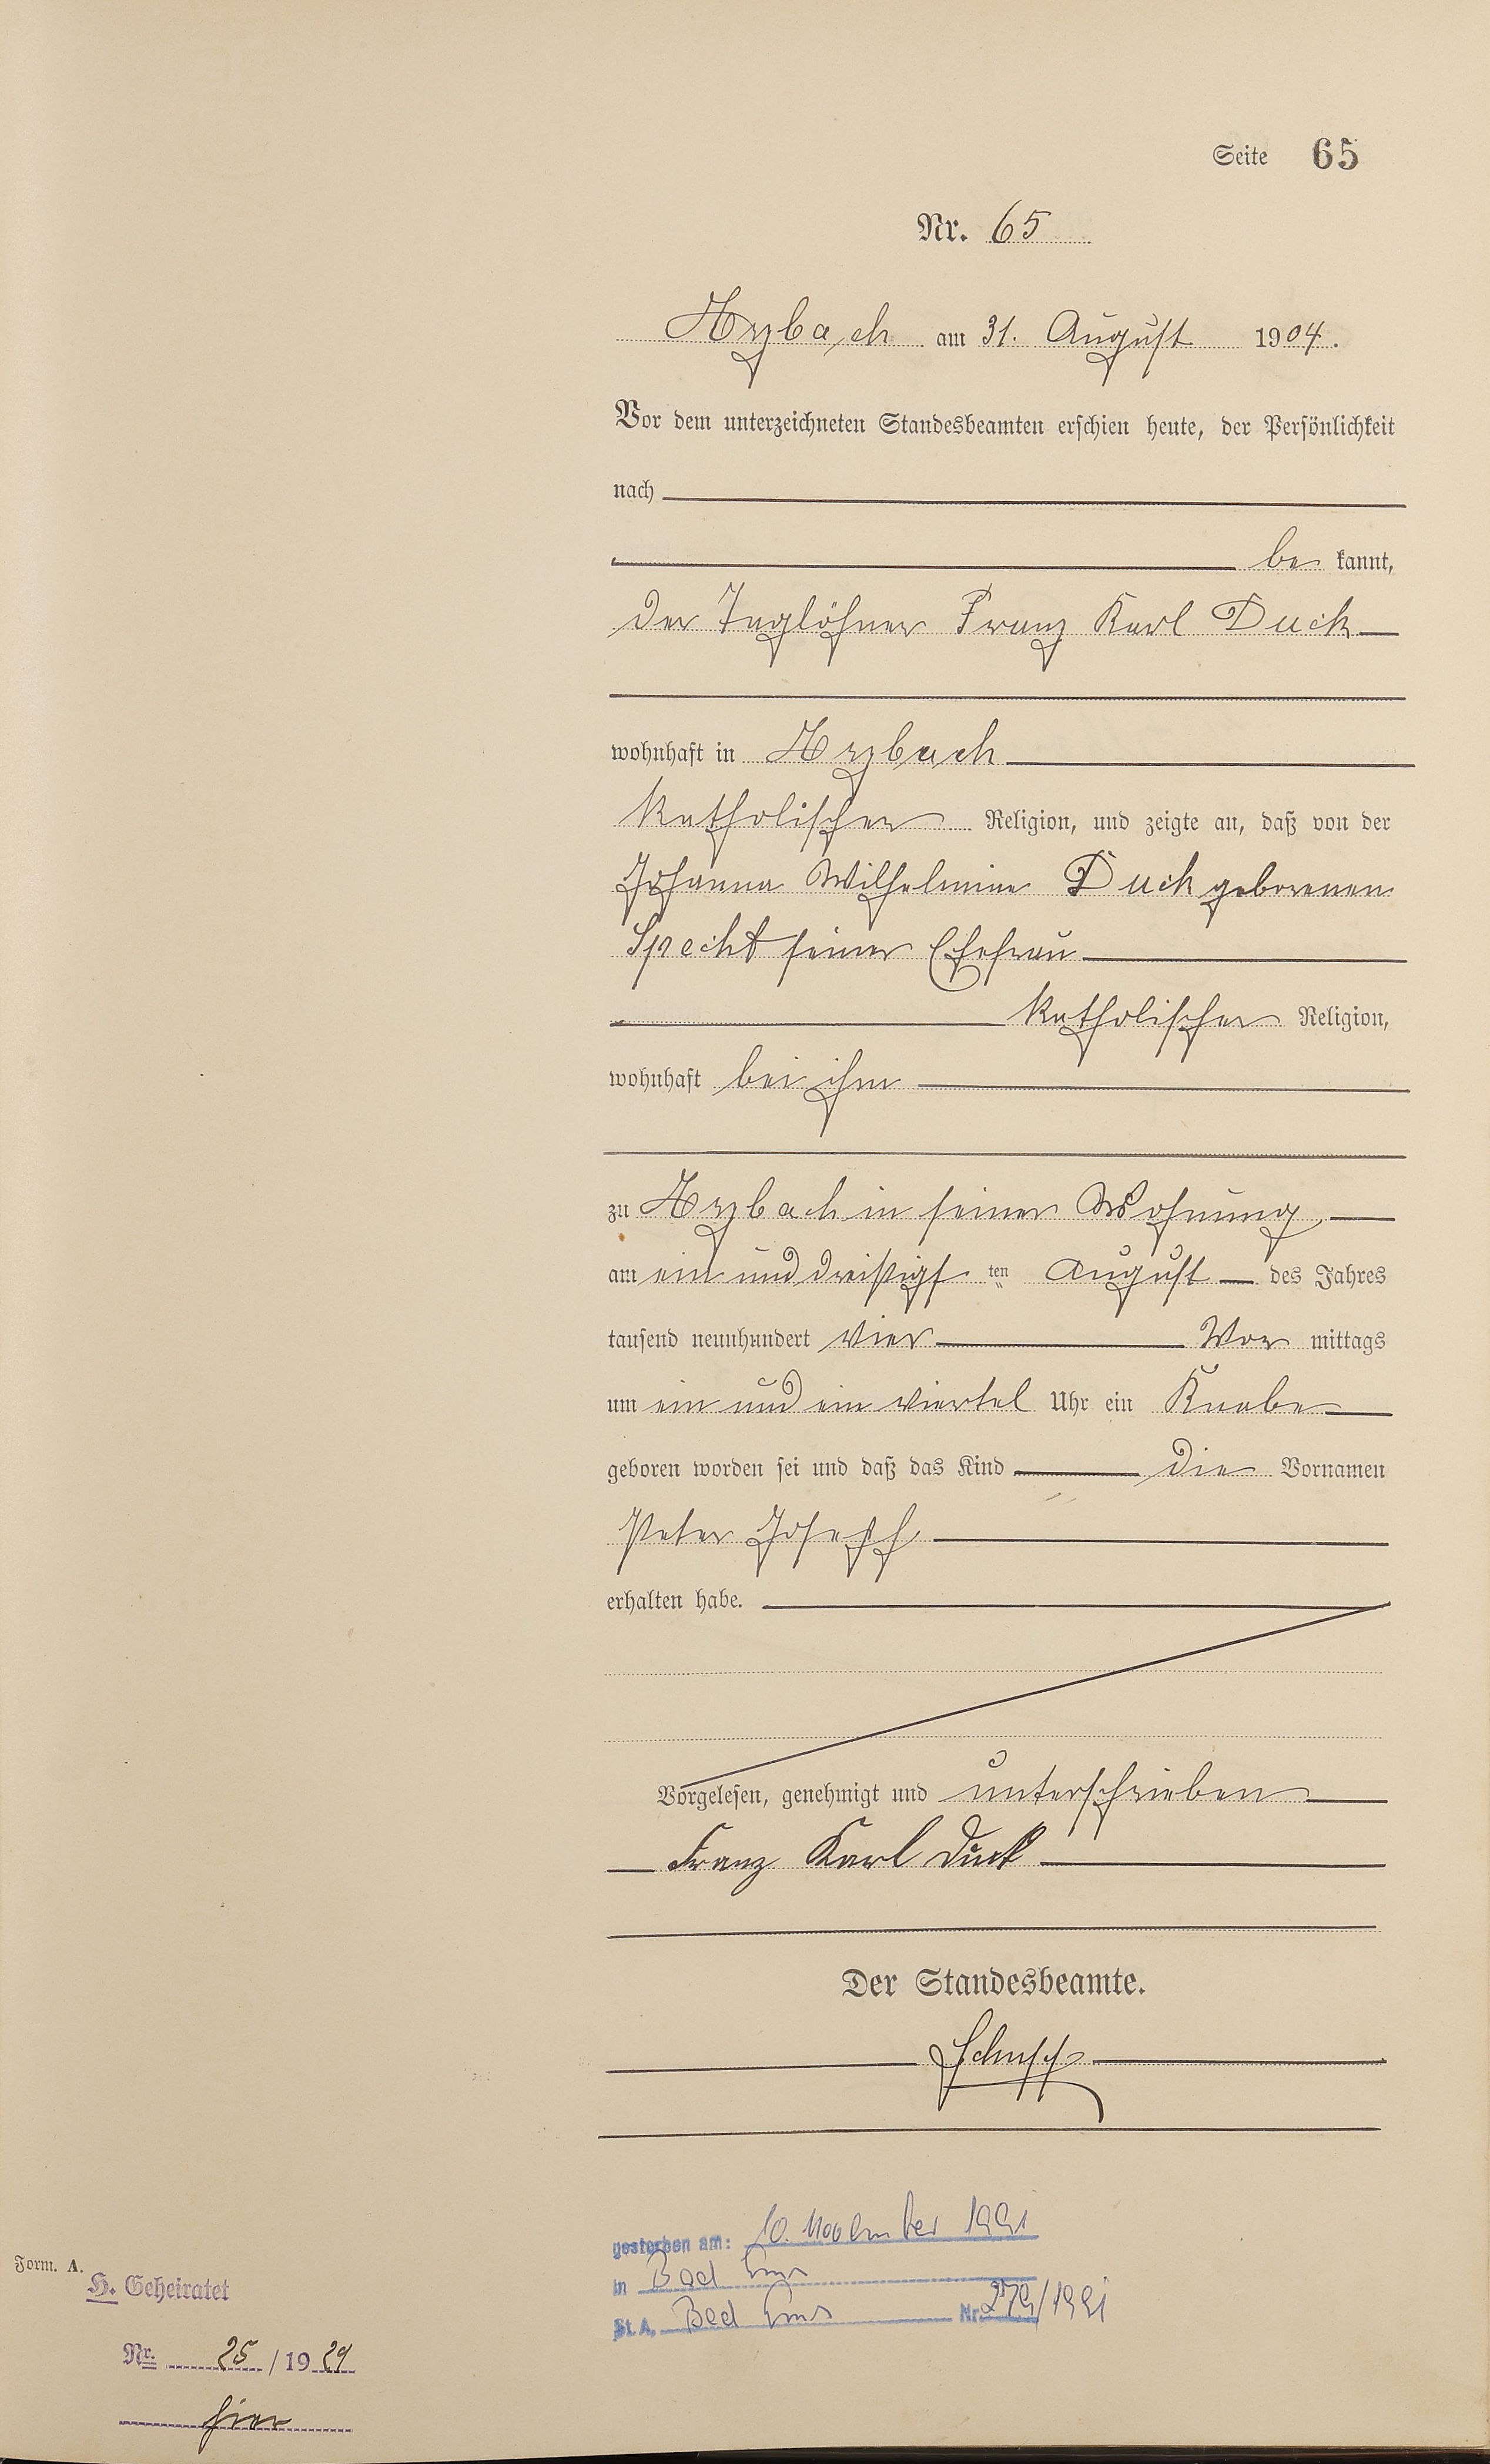 Seite 65
Nr. 65
Arzbach am 31. August 1904.
Vor dem unterzeichneten Standesbeamten erschien heute, der Persönlichkeit
nach
be kannt,
der Taglöhner Franz Karl Duck
wohnhaft in Arzbach
katholischer Religion, und zeigte an, daß von der
Johanna Wilhelmine Duck geborenen
Specht seiner Ehefrau
katholischer Religion,
wohnhaft bei ihm
zu Arzbach in seiner Wohnung
am ein und dreißigsten August des Jahres
tausend neunhundert vier Vor mittags
um ein und ein viertel Uhr ein Knabe
geboren worden sei und daß das Kind die Vornamen
Peter Joseph
erhalten habe.
Vorgelesen, genehmigt und unterschrieben
Franz Karl Duck
Der Standesbeamte.
Schupp
gestorben am: 10. November 1991
in Bad Ems
St. A. Bad Ems Nr. 279/1991
Form. A.
H. Geheiratet
Nr. 25/1929
hier